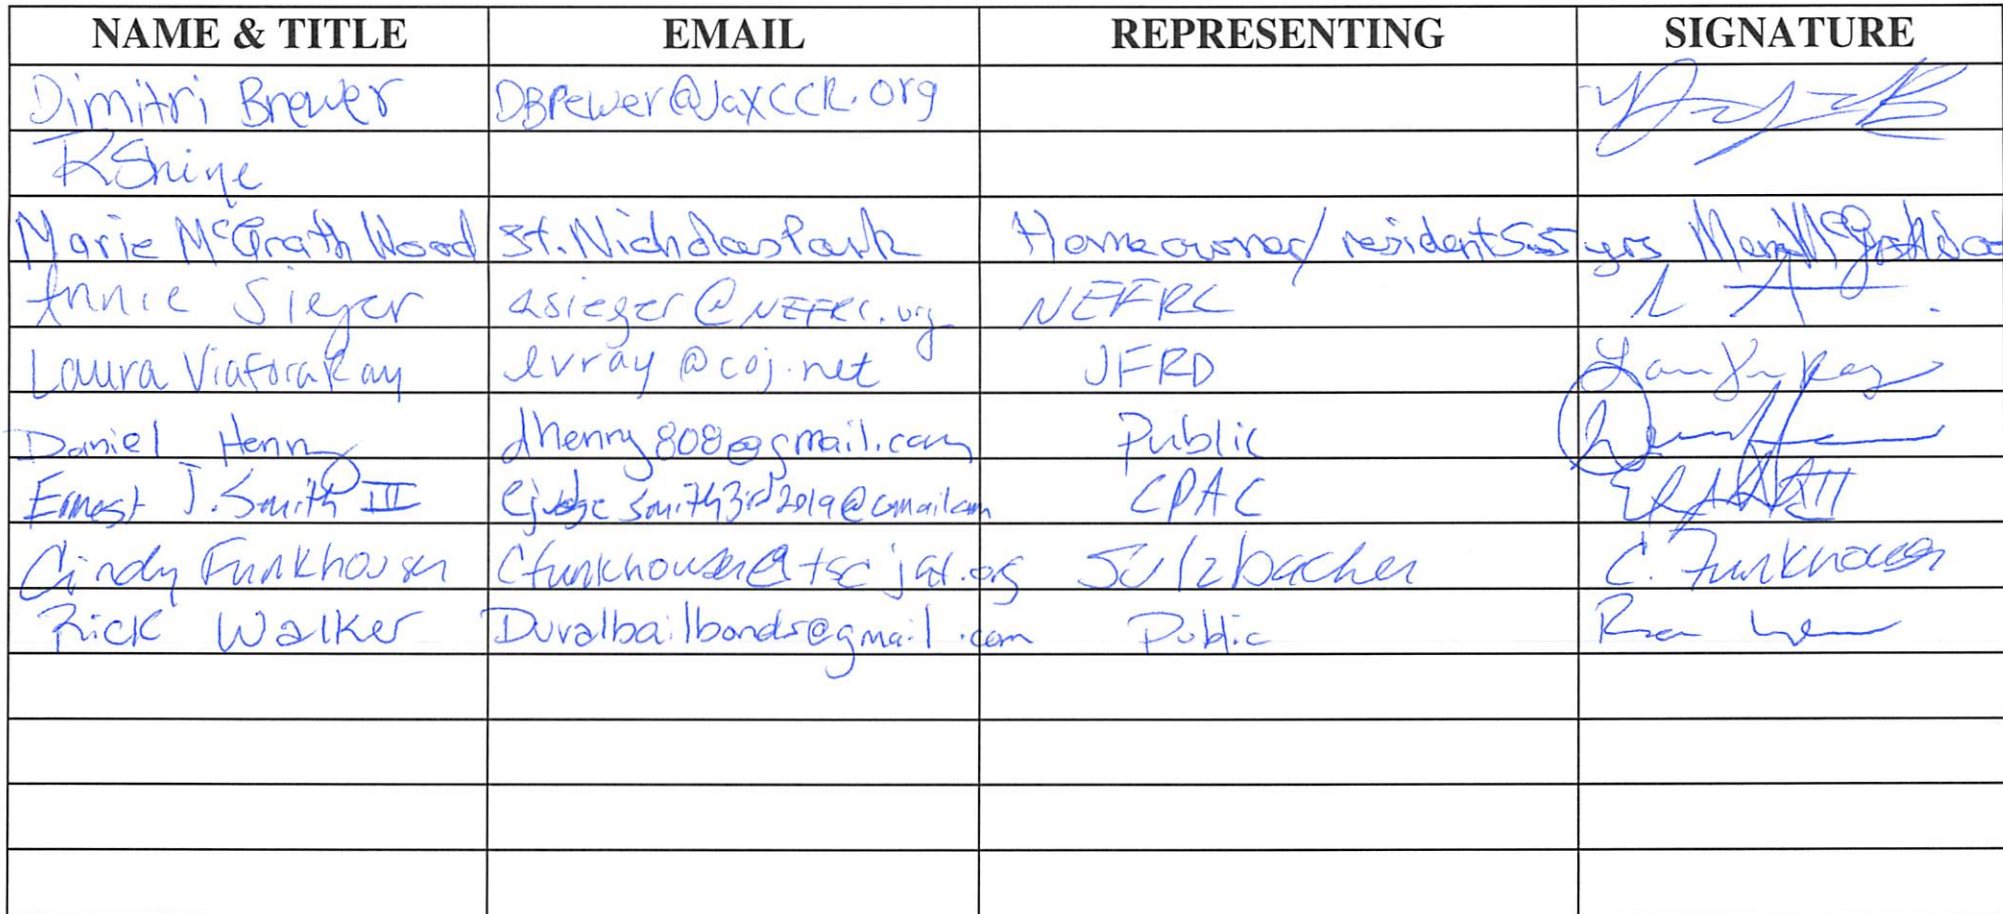 NAME & TITLE EMAIL REPRESENTING SIGNATURE
Dimitri Brewer DBrewer@JaxCCR.org
KShine
Marie McGrath Wood St. Nicholas Park Homeowner/resident 55 yrs
Annie Sieger asieger@NEFRC.org NEFRC
Laura Viafora Ray lvray@coj.net JFRD
Daniel Henry dhenry808@gmail.com Public
Ernest J. Smith III CPAC
Cindy Funkhouser Cfunkhouser@tscjax.org Sulzbacher C. Funkhouser
Rick Walker Duvalbailbonds@gmail.com Public